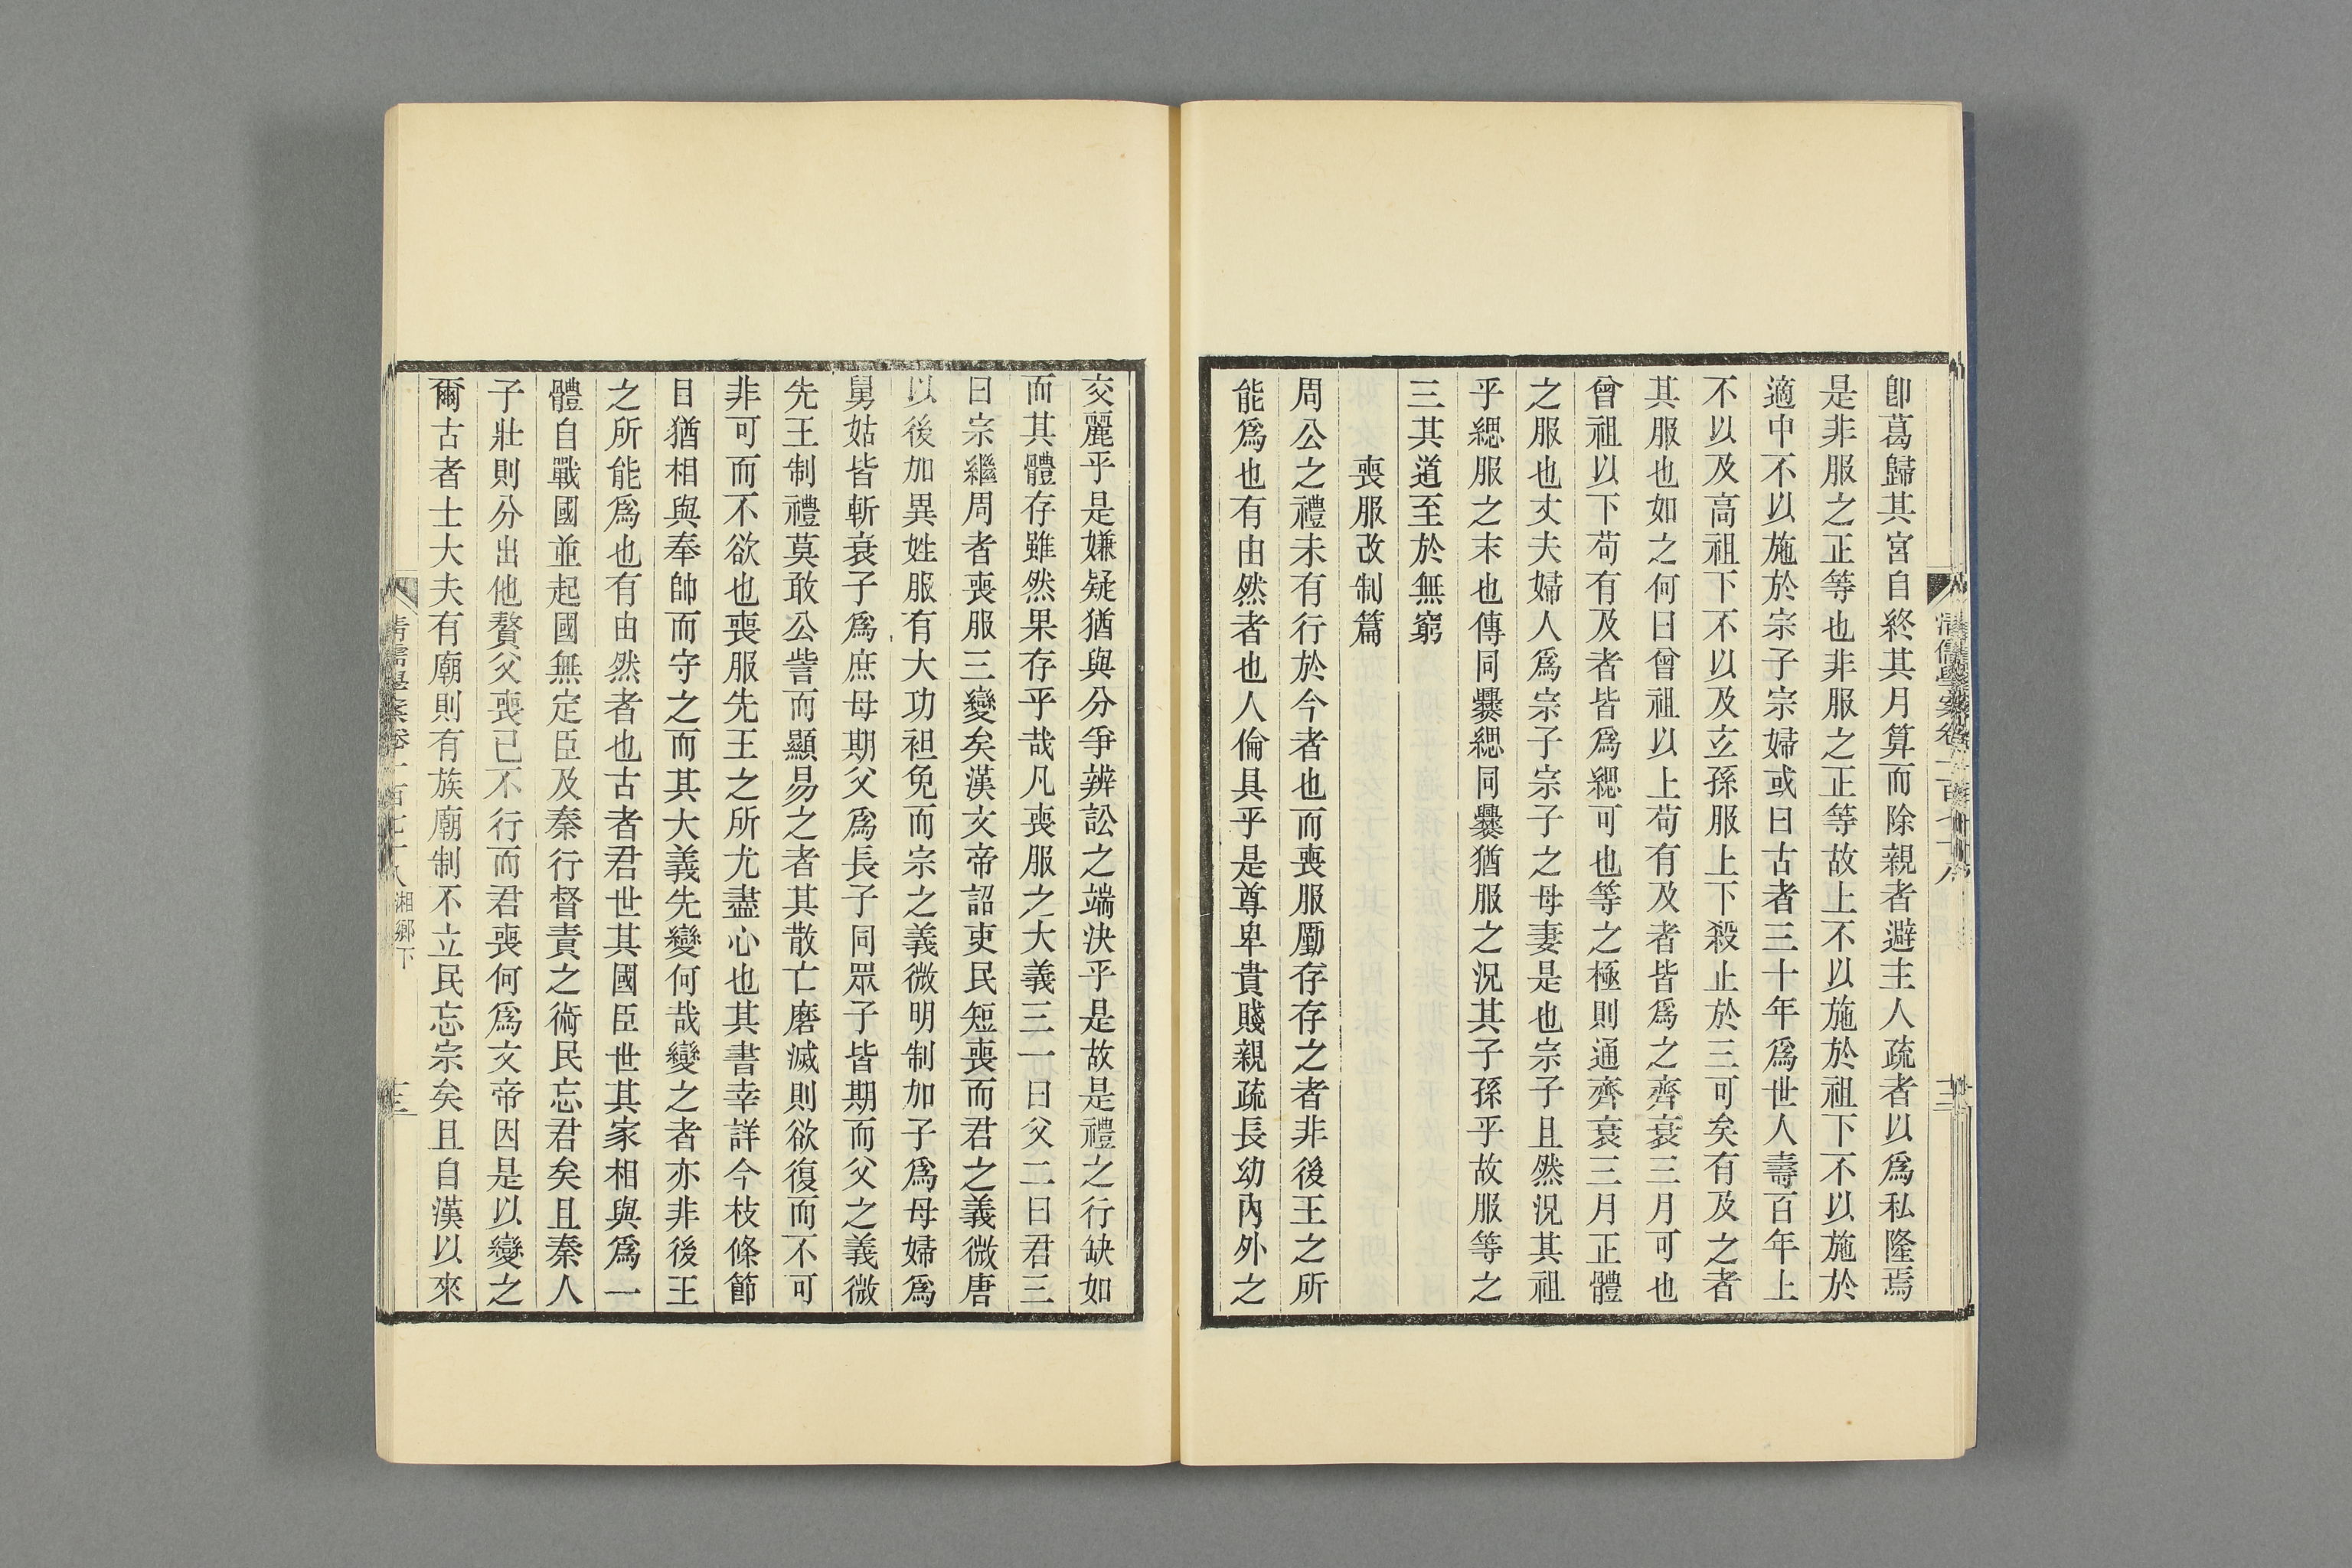 卽葛歸其宮自終其月算而除親者避主人疏者以爲私隆焉
是非服之正等也非服之正等故上不以施於祖下不以施於
適中不以施於宗子宗婦或曰古者三十年爲世人壽百年上
不以及高祖下不以及玄孫服上下殺止於三可矣有及之者
其服也如之何曰曾祖以上苟有及者皆爲之齊衰三月可也
曾祖以下苟有及者皆爲緦可也等之極則通齊衰三月正體
之服也丈夫婦人爲宗子宗子之母妻是也宗子且然況其祖
乎緦服之末也傳同爨緦同爨猶服之況其子孫乎故服等之
三其道至於無窮
喪服改制篇
周公之禮未有行於今者也而喪服勴存存之者非後王之所
能爲也有由然者也人倫具乎是尊卑貴賤親疏長幼內外之
交麗乎是嫌疑猶與分爭辨訟之端決乎是故是禮之行缺如
而其體存雖然果存乎哉凡喪服之大義三一曰父二曰君三
曰宗繼周者喪服三變矣漢文帝詔吏民短喪而君之義微唐
以後加異姓服有大功袒免而宗之義微明制加子爲母婦爲
舅姑皆斬衰子爲庶母期父爲長子同眾子皆期而父之義微
先王制禮莫敢公訾而顯易之者其散亡磨滅則欲復而不可
非可而不欲也喪服先王之所尤盡心也其書幸詳今枝條節
目猶相與奉帥而守之而其大義先變何哉變之者亦非後王
之所能爲也有由然者也古者君世其國臣世其家相與爲一
體自戰國並起國無定臣及秦行督責之術民忘君矣且秦人
子壯則分出他贅父喪已不行而君喪何爲文帝因是以變之
爾古者士大夫有廟則有族廟制不立民忘宗矣且自漢以來
清儒學案卷一百七十八 湘鄉下
十三